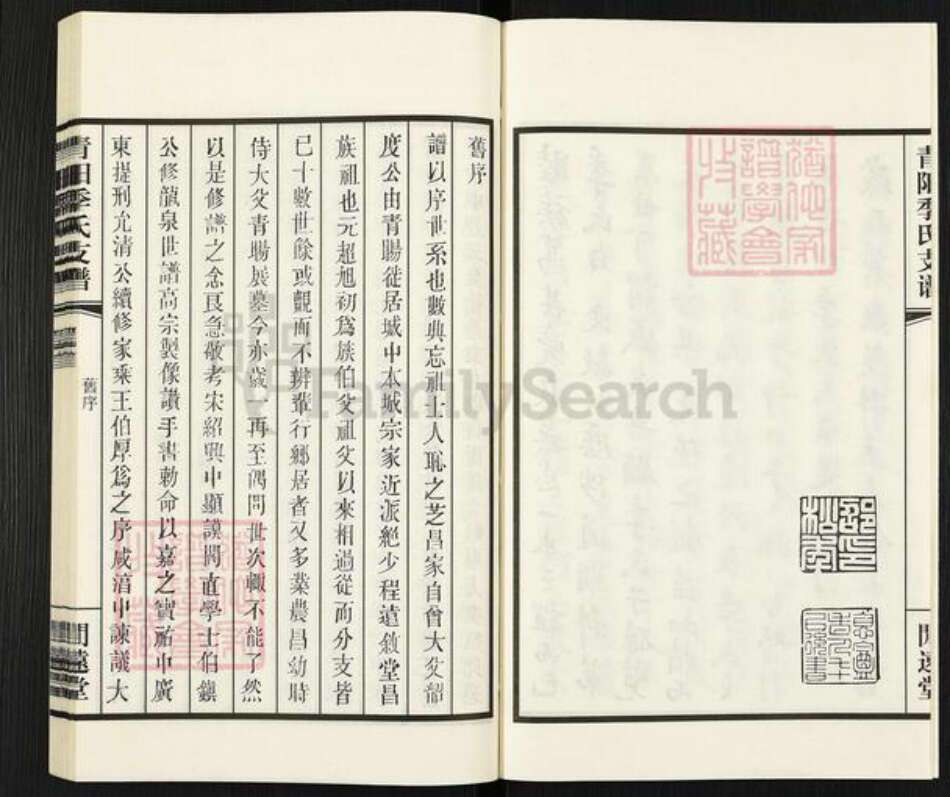 青陽季氏支譜
閒遠堂
譜學會
收藏
舊序
譜以序世系也數典忘祖士人恥之芝昌家自曾大父韶
度公由青暘徙居城中本城宗家近派絕少程遠敘堂昌
族祖也元超旭初為族伯父祖父以來相過從而分支皆
已十數世餘或覿面不辨輩行鄉居者又多業農昌幼時
侍大父青暘展墓今亦歲一再至偶問世次輒不能了然
以是修譜之念良急敬考宋紹興中顯謨閣直學士伯
公修龍泉世譜高宗製像讚手書勅命以嘉之寶祐中廣
東提刑允清公續修家乘王伯厚為之序咸淳中諫議大
青陽季氏支譜
舊序
閒遠堂
FamilySearch